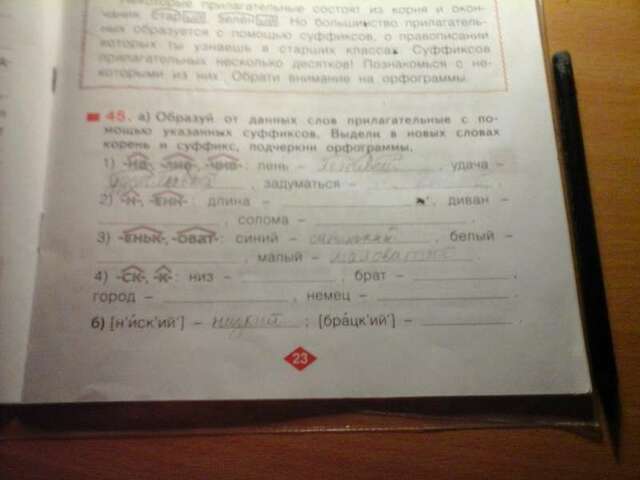 Некоторые прилагательные состоят из корня и окон-
чания. Но большинство прилагатель-
ных образуется с помощью суффиксов, о правописании
которых ты узнаешь в старших классах. Суффиксов
прилагательных несколько десятков! Познакомься с не-
которыми из них. Обрати внимание на орфограммы.
45. а) Образуй от данных слов прилагательные с по-
мощью указанных суффиксов. Выдели в новых словах
корень и суффикс, подчеркни орфограммы.
1) лень – удача –
, задуматься –
2) -Н-, -ЕНН-: длина – , диван –
, солома – .
3) -ЕНЬК-, -ОВАТ-: синий – , белый –
, малый – маловатый .
4) -СК-, -К-: низ – , брат – ,
город – , немец – .
б) [н'иск'ий'] – низкий ; [брацк'ий'] –
23